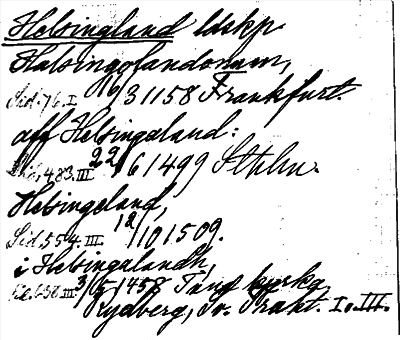 Helsingland ldskp
Halsingglandonam,
Sid. 76. I. 16/3 1158 Frankfurt.
aff Helsingaland:
Sid. 483. III. 22/6 1499 Sthlm.
Helsingeland,
Sid. 554. III. 12/10 1509.
i Helsingalandh,
Sid. 638. III. 3/5 1458 Tuna kyrka
Rydberg, Sv. Trakt. I o. III.